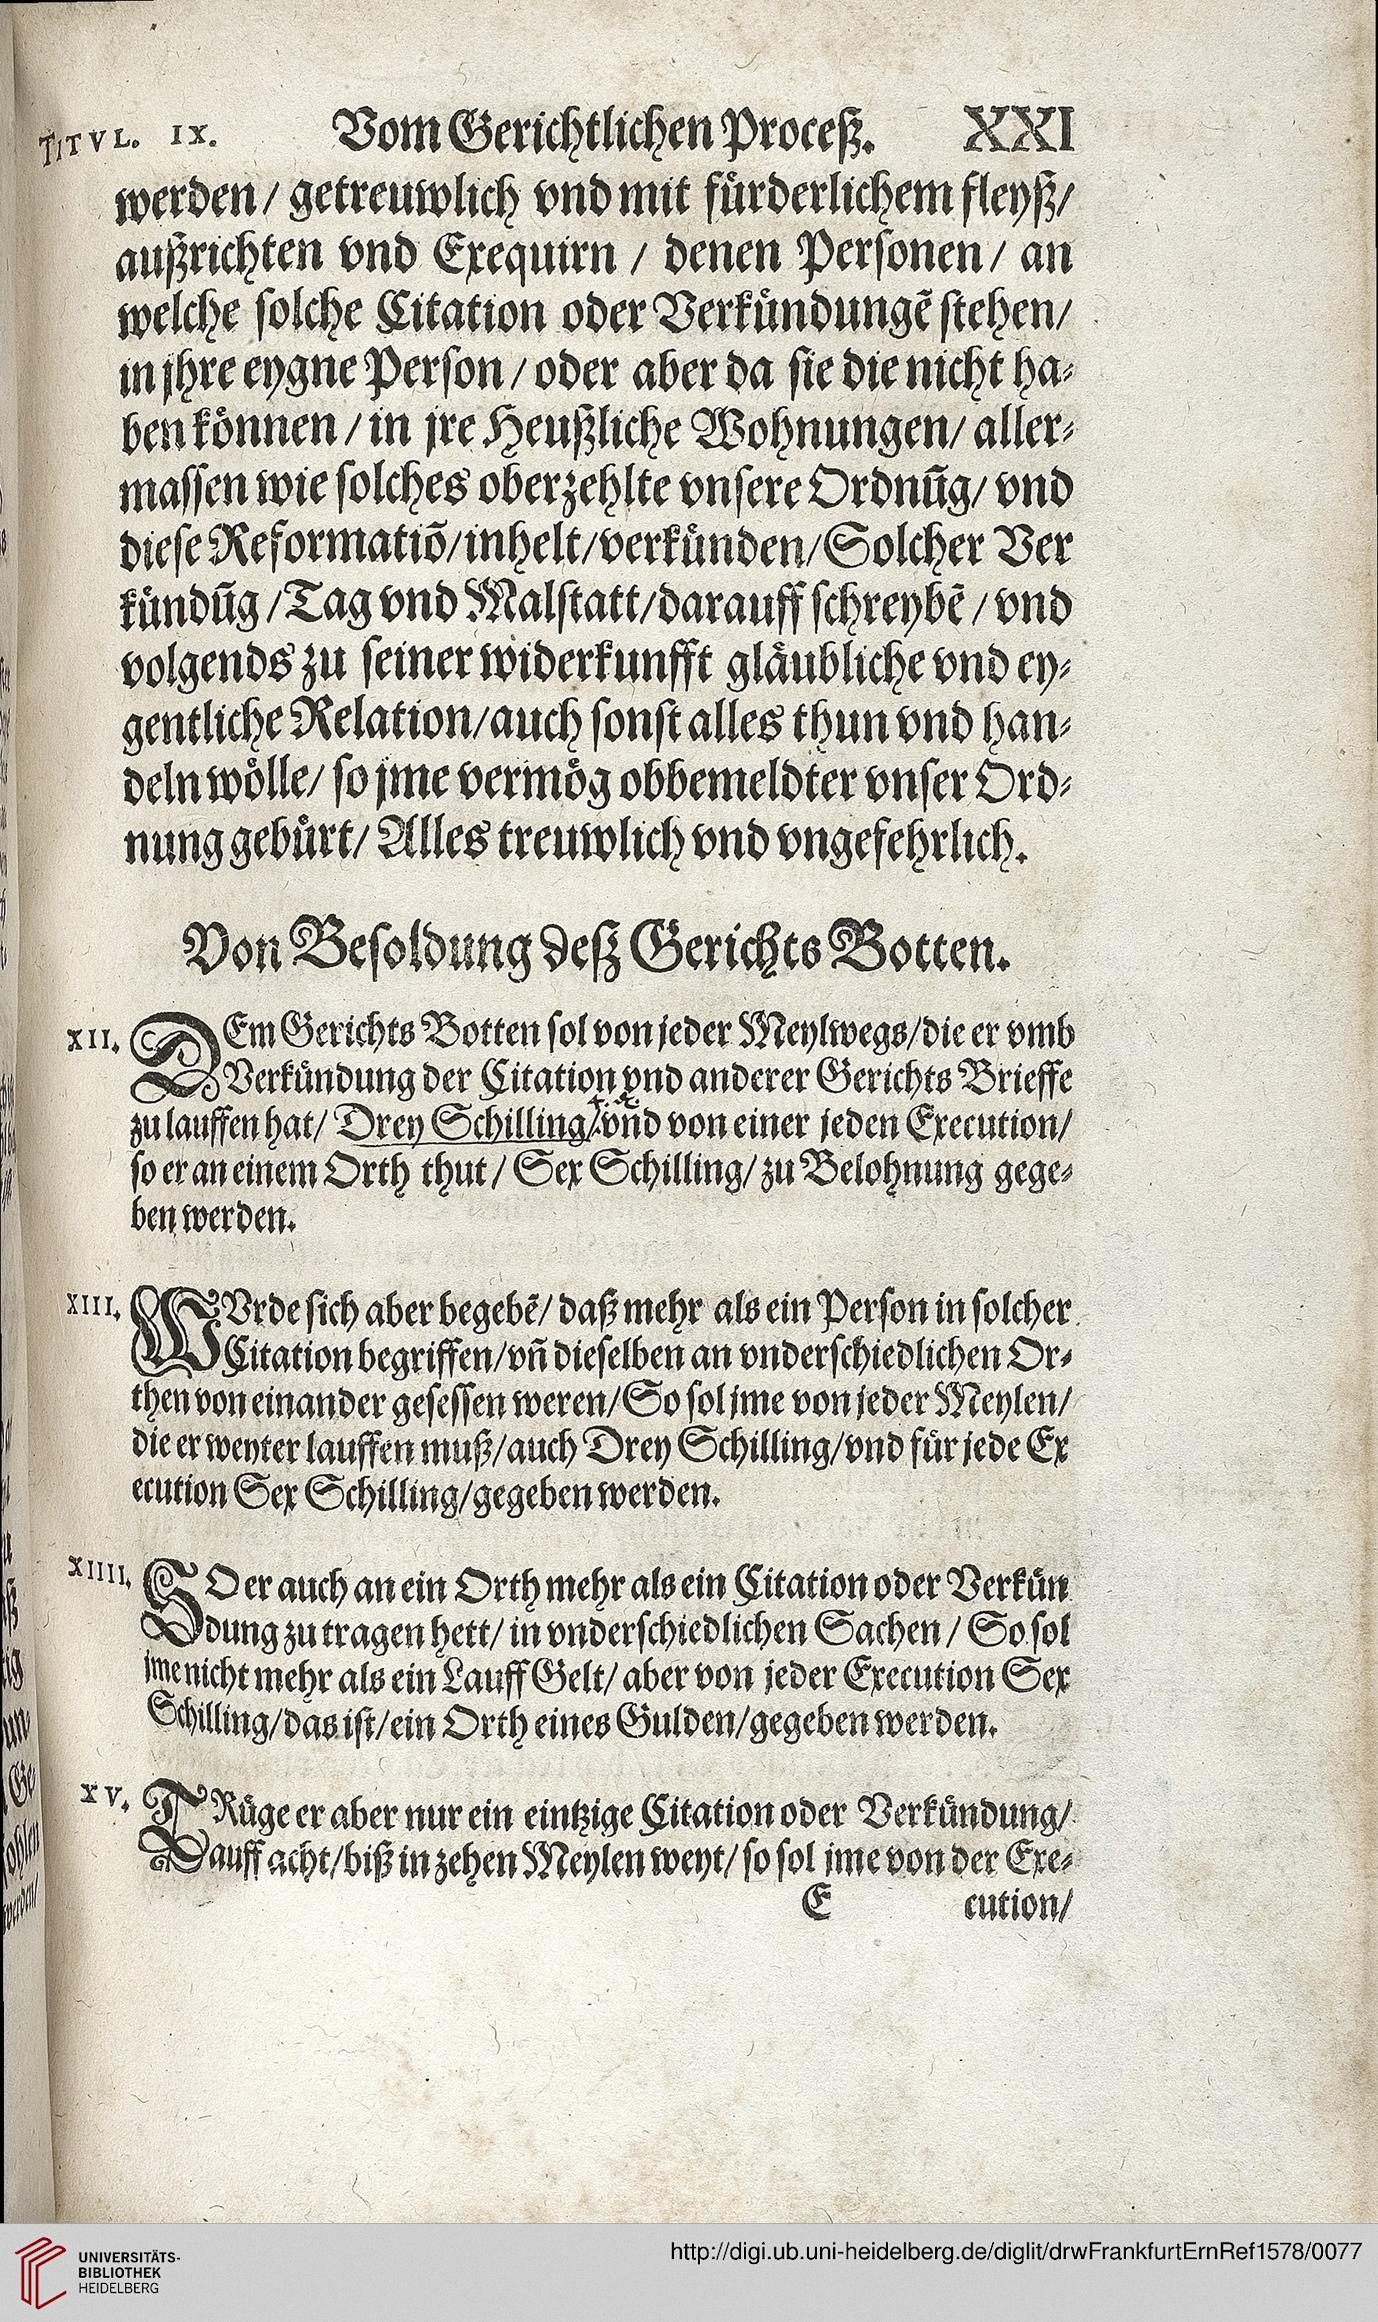 TITVL. IX. Vom Gerichtlichen Proceß. XXI
werden/ getreuwlich vnd mit fürderlichem fleyß/
außrichten vnd Exequirn / denen Personen/ an
welche solche Citation oder Verkündungẽ stehen/
in jhre eygne Person / oder aber da sie die nicht ha-
ben können / in jre Heußliche Wohnungen/ aller-
massen wie solches oberzehlte vnsere Ordnũg/ vnd
diese Reformatiõ/inhelt/verkünden/Solcher Ver
kündũg /Tag vnd Malstatt/darauff schreybẽ / vnd
volgends zu seiner widerkunfft gläubliche vnd ey-
gentliche Relation/auch sonst alles thun vnd han-
deln wölle/ so jme vermög obbemeldter vnser Ord-
nung gebürt/ Alles treuwlich vnd vngefehrlich.
Von Besoldung deß Gerichts Botten.
XII. DEm Gerichts Botten sol von jeder Meylwegs/die er vmb
Verkündung der Citation vnd anderer Gerichts Brieffe
zu lauffen hat/ Drey Schilling/ vnd von einer jeden Execution/
so er an einem Orth thut/ Sex Schilling/ zu Belohnung gege-
ben werden.
XIII. WVrde sich aber begebẽ/ daß mehr als ein Person in solcher
Citation begriffen/vñ dieselben an vnderschiedlichen Or-
then von einander gesessen weren/So sol jme von jeder Meylen/
die er weyter lauffen muß/auch Drey Schilling/vnd für jede Ex
ecution Sex Schilling/gegeben werden.
XIIII. SO er auch an ein Orth mehr als ein Citation oder Verkün
dung zu tragen hett/ in vnderschiedlichen Sachen / So sol
jme nicht mehr als ein Lauff Gelt/ aber von jeder Execution Sex
Schilling/das ist/ein Orth eines Gulden/gegeben werden.
XV. TRüge er aber nur ein eintzige Citation oder Verkündung/
auff acht/biß in zehen Meylen weyt/ so sol jme von der Exe-
E cution/
UNIVERSITÄTS-
BIBLIOTHEK
HEIDELBERG
http://digi.ub.uni-heidelberg.de/diglit/drwFrankfurtErnRef1578/0077